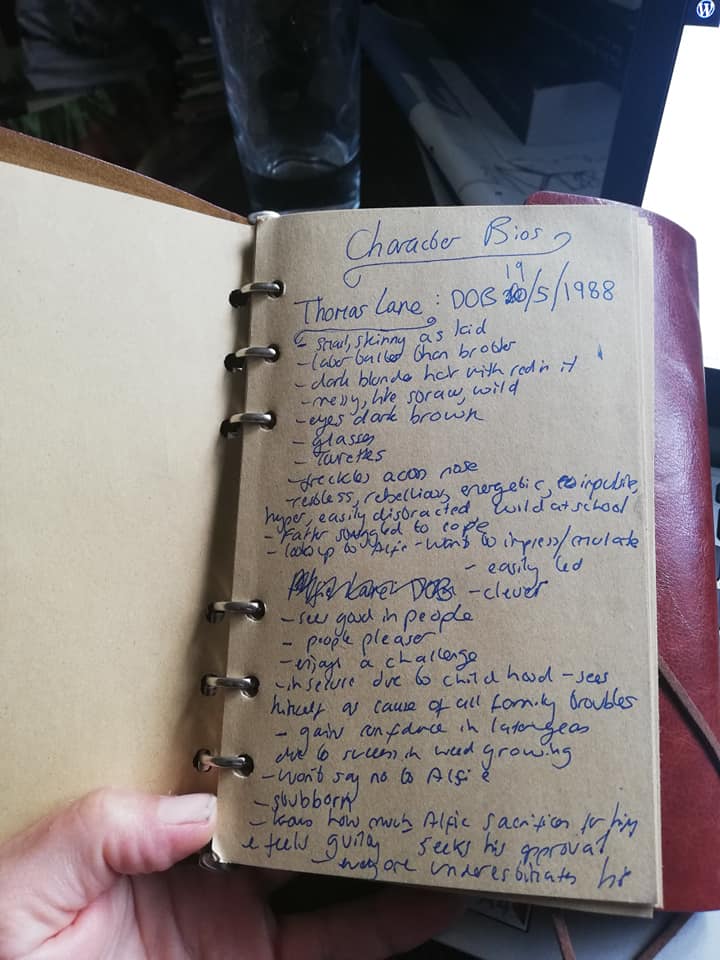 Character Bios
19
Thomas Lane : DOB /5/1988
- small, skinny as kid
- later taller than brother
- dark blonde hair with red in it
- messy, like straw, wild
- eyes dark brown
- glasses
- turettes
- freckles across nose
- restless, rebellious, energetic, impulsive,
hyper, easily distracted wild at school
- Father struggled to cope
- looks up to Alfie - want to impress/emulate
- easily led
Alfie Lane: DOB - clever
- sees good in people
- people pleaser
- enjoys a challenge
- insecure due to childhood - sees
himself as cause of all family troubles
- gains confidence in later years
due to success in weed growing
- Won't say no to Alfie
- stubborn
- knows how much Alfie sacrifices for him
& feels guilty seeks his approval
- everyone underestimates him